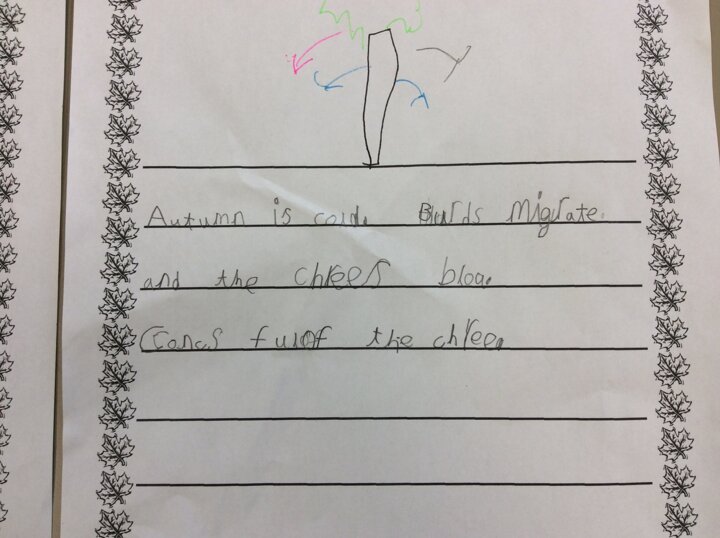 Autumn is cord. Burds Migrate.
and the chrees bloa.
Concs fulof the chree.